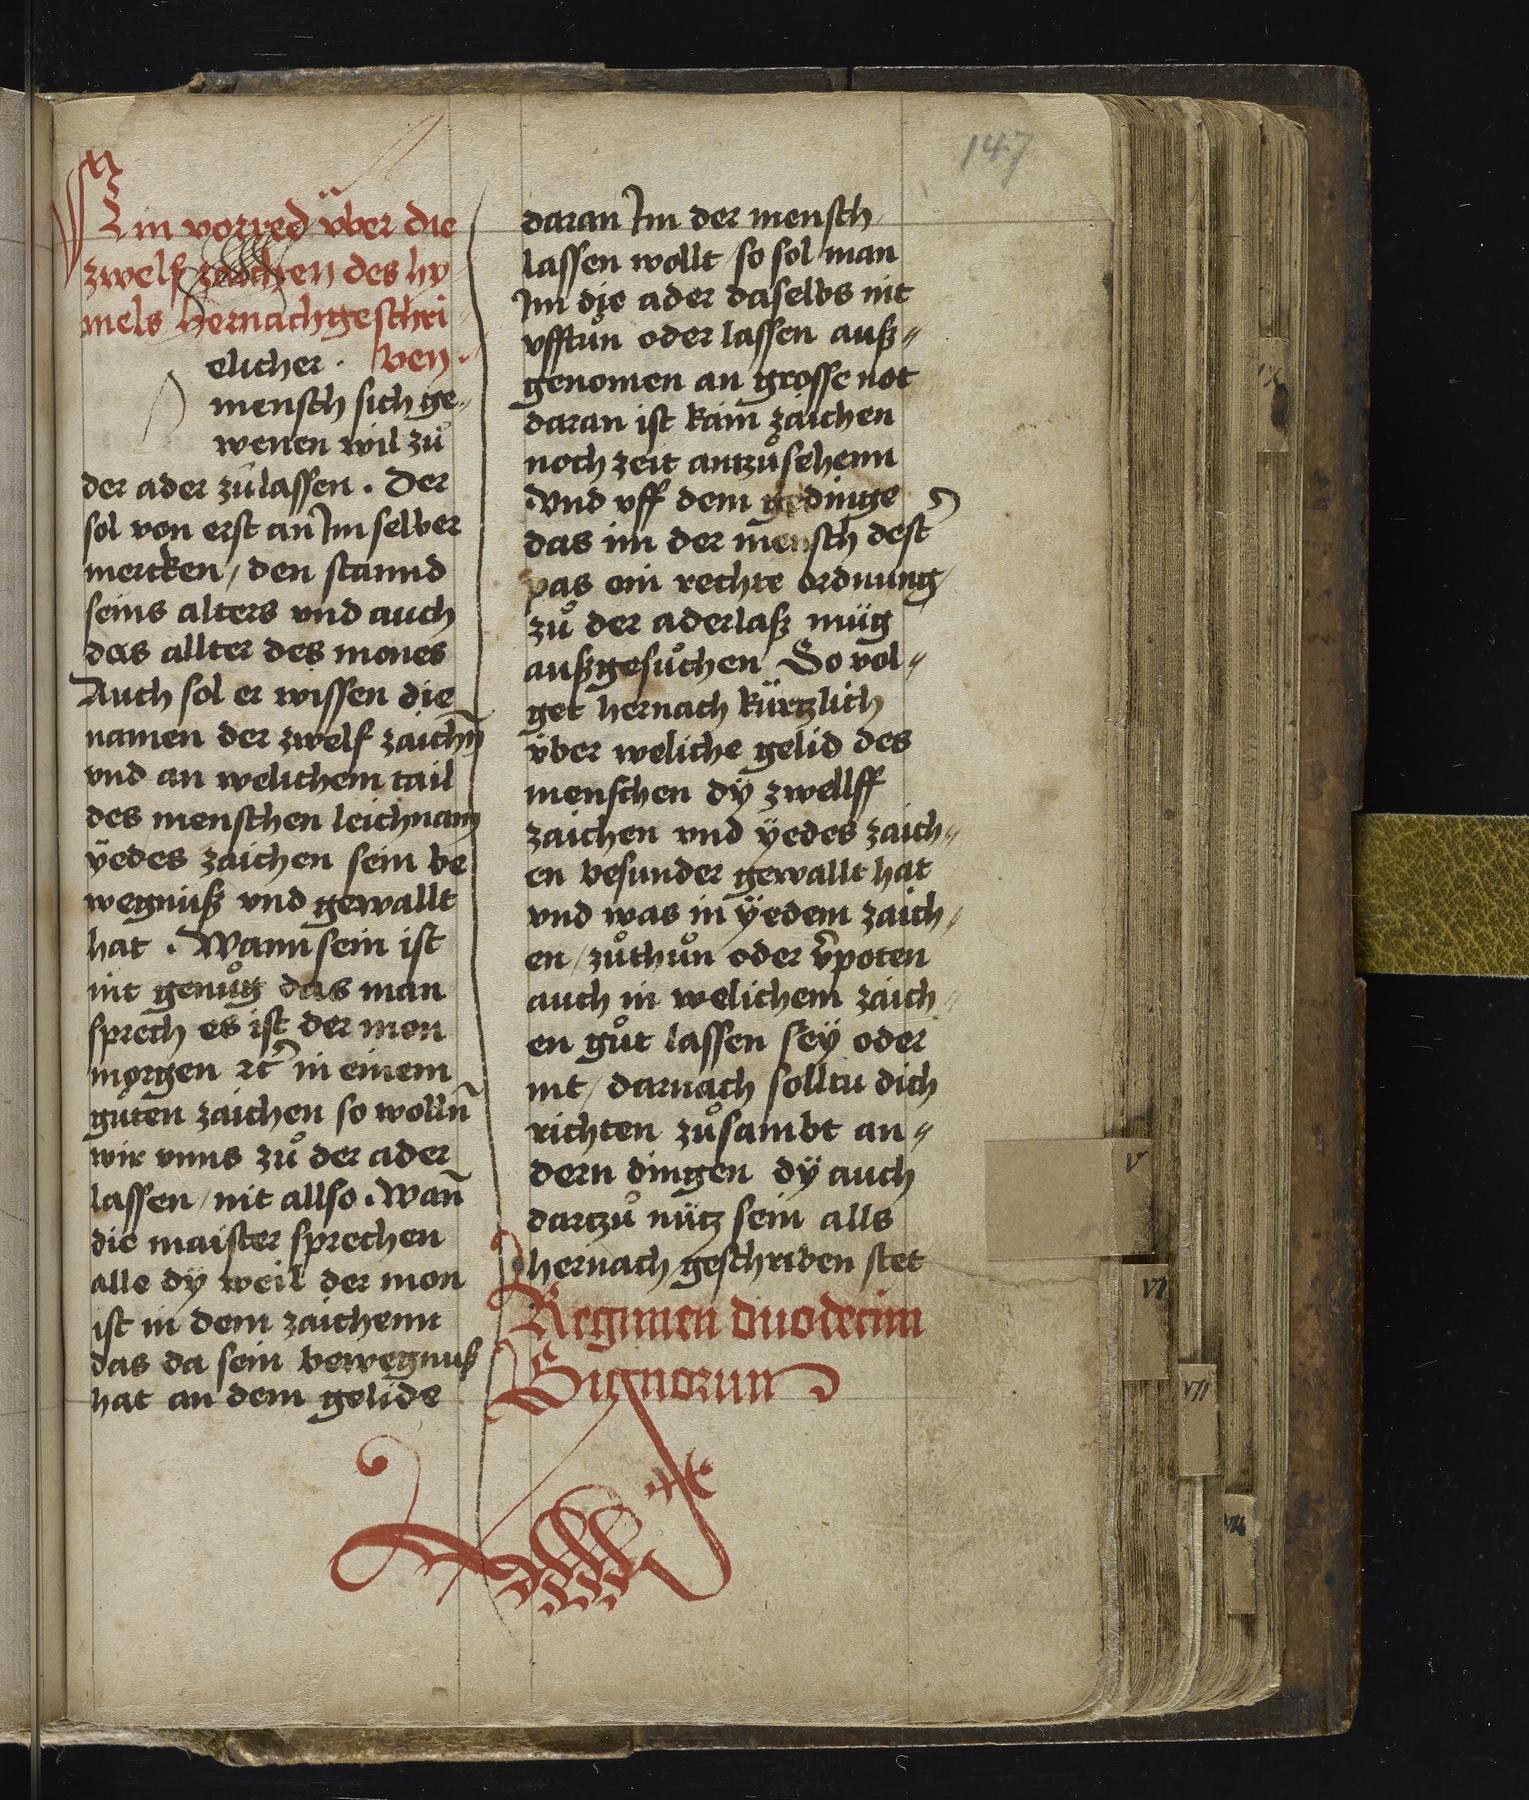 147
Ein vorred vͤber die
zwelf zaichen des hy
mels hernachgeschri
ben.
elicher.
mensch sich ge„
wenen wil zuͦ
der ader zuͦlassen. Der
sol von erst an Im selber
mercken / den stannd
seins alters vnd auch
das allter des mones
Auch sol er wissen die
namen der zwelf zaichn̄
vnd an welichem tail
des menschen leichnam
ÿedes zaichen sein be
wegnuß vnd gewallt
hat . Wann sein ist
nit genuͦg das man
sprech es ist der mon
morgen ꝛc̃ in einem
guͦten zaichen so wolln̄
wir vnns zuͦ der ader
lassen / nit allso. Wan̄
die maister sprechen
alle dÿ weil der mon
ist in dem zaichenn
das da sein bewegnuß
hat an dem gelide
daran Im der mensch
lassen wollt so sol man
Im die ader daselbs nit
vfftuͦn oder lassen auß„
genomen an grosse not
daran ist kain zaichen
noch zeit antzuͦsehenn
Vnd vff dem gedinge
das im der mensch dest̾
pas ein rechte ordnung
zuͦ der aderlaß müg
außgesuͦchen So vol„
get hernach kürtzlich
vͤber weliche gelid des
menschen dÿ zwellff
zaichen vnd ÿedes zaich„
en besunder gewallt hat
vnd was in ÿedem zaich„
en / zuͦthuͦn oder v̾poten
auch in welichem zaich„
en guͦt lassen seÿ oder
nit / darnach solltu dich
richten zuͦsambt an„
dern dingen dÿ auch
dartzuͦ nütz sein alls
hernach geschriben stet
Regimen duodecim
Signorum
IX
V
VI
VII
VIII